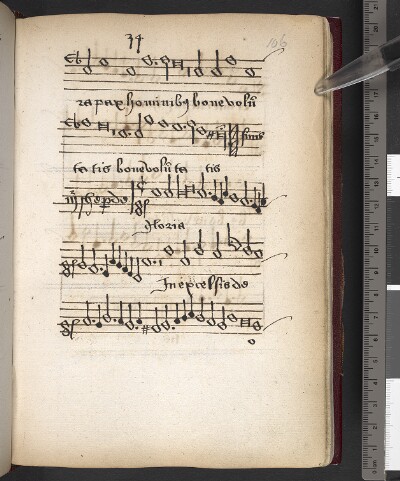 34 106
ra pax hominibꝯ bone volũ
finis
ta tis bone volũ ta tis
Gloria
In excelsis deo